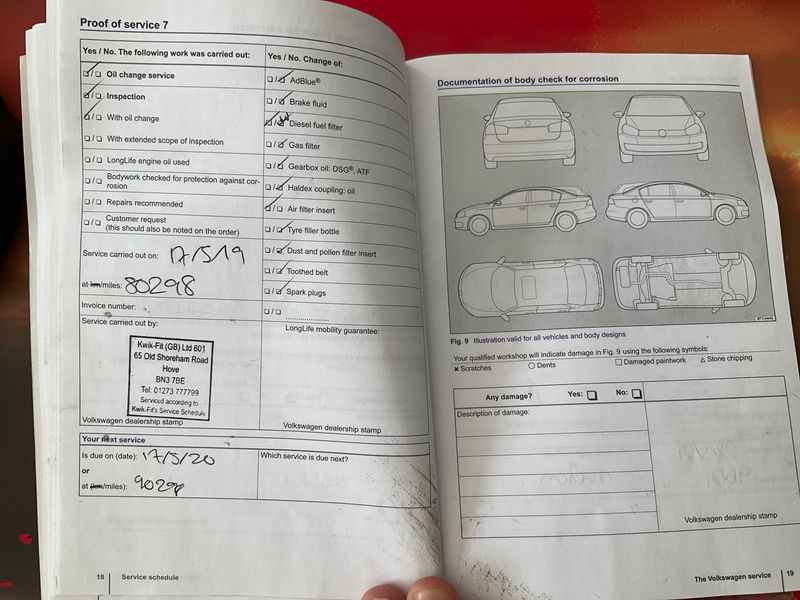 Proof of service 7
Yes / No. The following work was carried out:
Oil change service
Inspection
With oil change
With extended scope of inspection
LongLife engine oil used
Bodywork checked for protection against cor-
rosion
Repairs recommended
Customer request
(this should also be noted on the order)
Service carried out on: 17/5/19
at km/miles: 80298
Invoice number:
Service carried out by:
Kwik-Fit (GB) Ltd 601
65 Old Shoreham Road
Hove
BN3 7BE
Tel: 01273 777799
Serviced according to
Kwik-Fit's Service Schedule
Volkswagen dealership stamp
Yes / No. Change of:
AdBlue®
Brake fluid
Diesel fuel filter
Gas filter
Gearbox oil: DSG®, ATF
Haldex coupling: oil
Air filter insert
Tyre filler bottle
Dust and pollen filter insert
Toothed belt
Spark plugs
LongLife mobility guarantee:
Volkswagen dealership stamp
Your next service
Is due on (date): 17/5/20
or
at (km/miles): 90298
Which service is due next?
18 Service schedule
Documentation of body check for corrosion
Fig. 9 Illustration valid for all vehicles and body designs
Your qualified workshop will indicate damage in Fig. 9 using the following symbols:
Scratches
Dents
Damaged paintwork
Stone chipping
Any damage? Yes: No:
Description of damage:
Volkswagen dealership stamp
The Volkswagen service 19